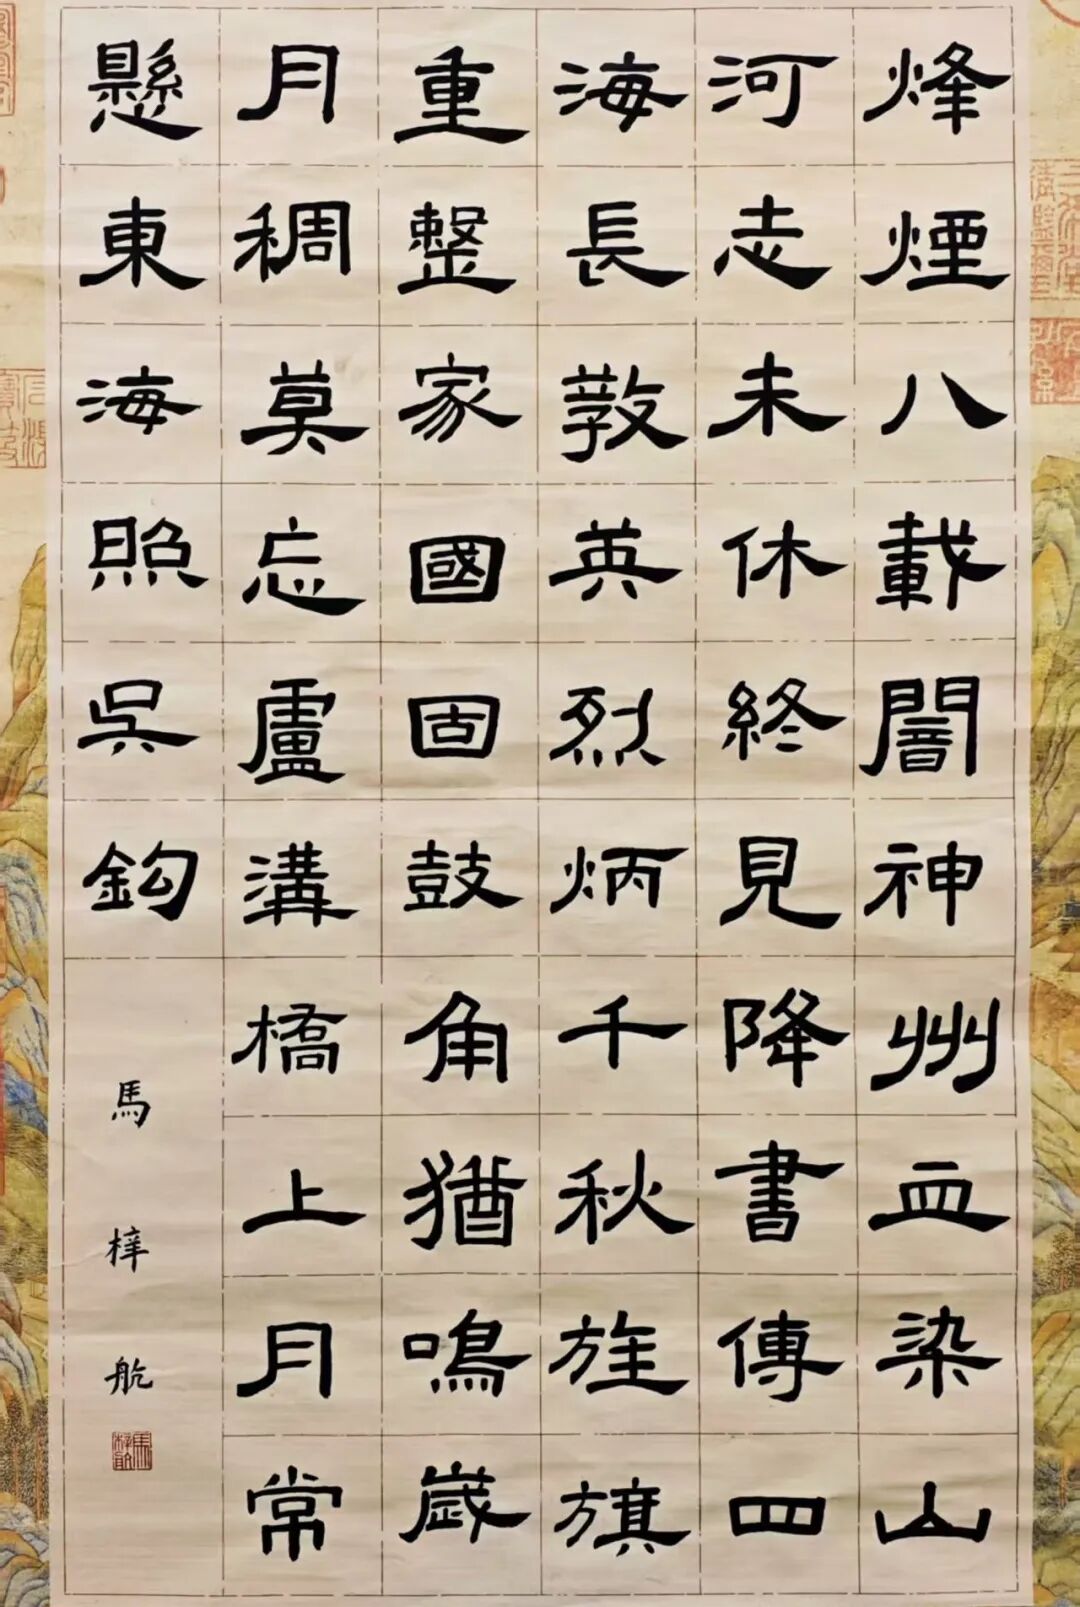 烽煙八載闇神州血染山
河志未休終見降書傳四
海長教英烈炳千秋旌旗
重整家國固鼓角猶鳴歲
月稠莫忘盧溝橋上月常
懸東海照吳鈎
馬梓航